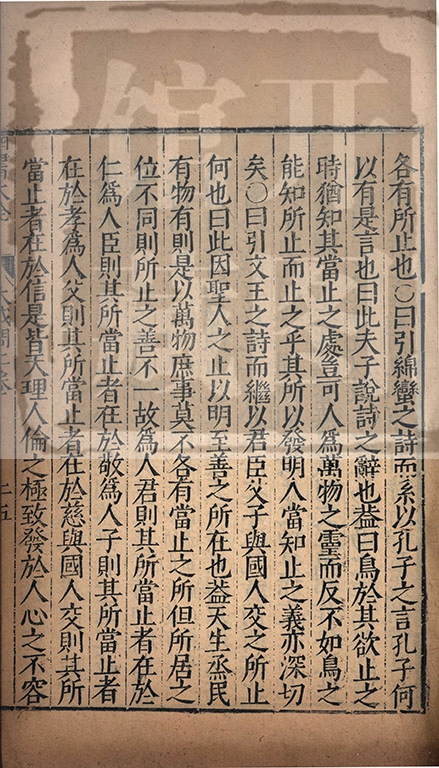 各有所止也○曰引緜蠻之詩而系以孔子之言孔子何
以有是言也曰此夫子說詩之辭也葢曰鳥於其欲止之
時猶知其當止之處豈可人爲萬物之靈而反不如鳥之
能知所止而止之乎其所以發明人當知止之義亦深切
矣○曰引文王之詩而繼以君臣父子與國人交之所止
何也曰此因聖人之止以明至善之所在也葢天生烝民
有物有則是以萬物庶事莫不各有當止之所但所居之
位不同則所止之善不一故爲人君則其所當止者在於
仁爲人臣則其所當止者在於敬爲人子則其所當止者
在於孝爲人父則其所當止者在於慈與國人交則其所
當止者在於信是皆天理人倫之極致發於人心之不容
二五